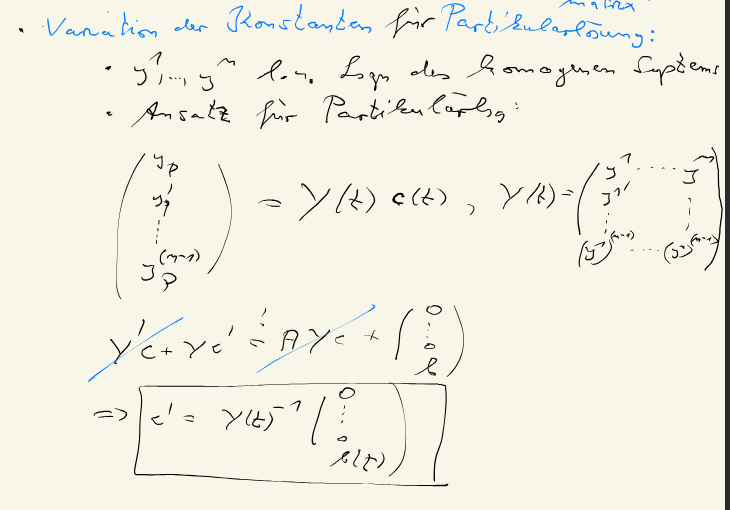 matrix
• Variation der Konstanten für Partikularlösung:
• y¹,..., yⁿ l.u. Lsgn des homogenen Systems
• Ansatz für Partikulärlsg:
( y_p y_p' ⋮ y_p^(n-1) ) = Y(t) c(t), Y(t) = ( y¹ ..... yⁿ y¹' ⋮ ⋮ (y¹)^(n-1) ..... (yⁿ)^(n-1) )
Y'c + Yc' =! AYc + ( 0 ⋮ 0 b )
=> c' = Y(t)⁻¹ ( 0 ⋮ 0 b(t) )